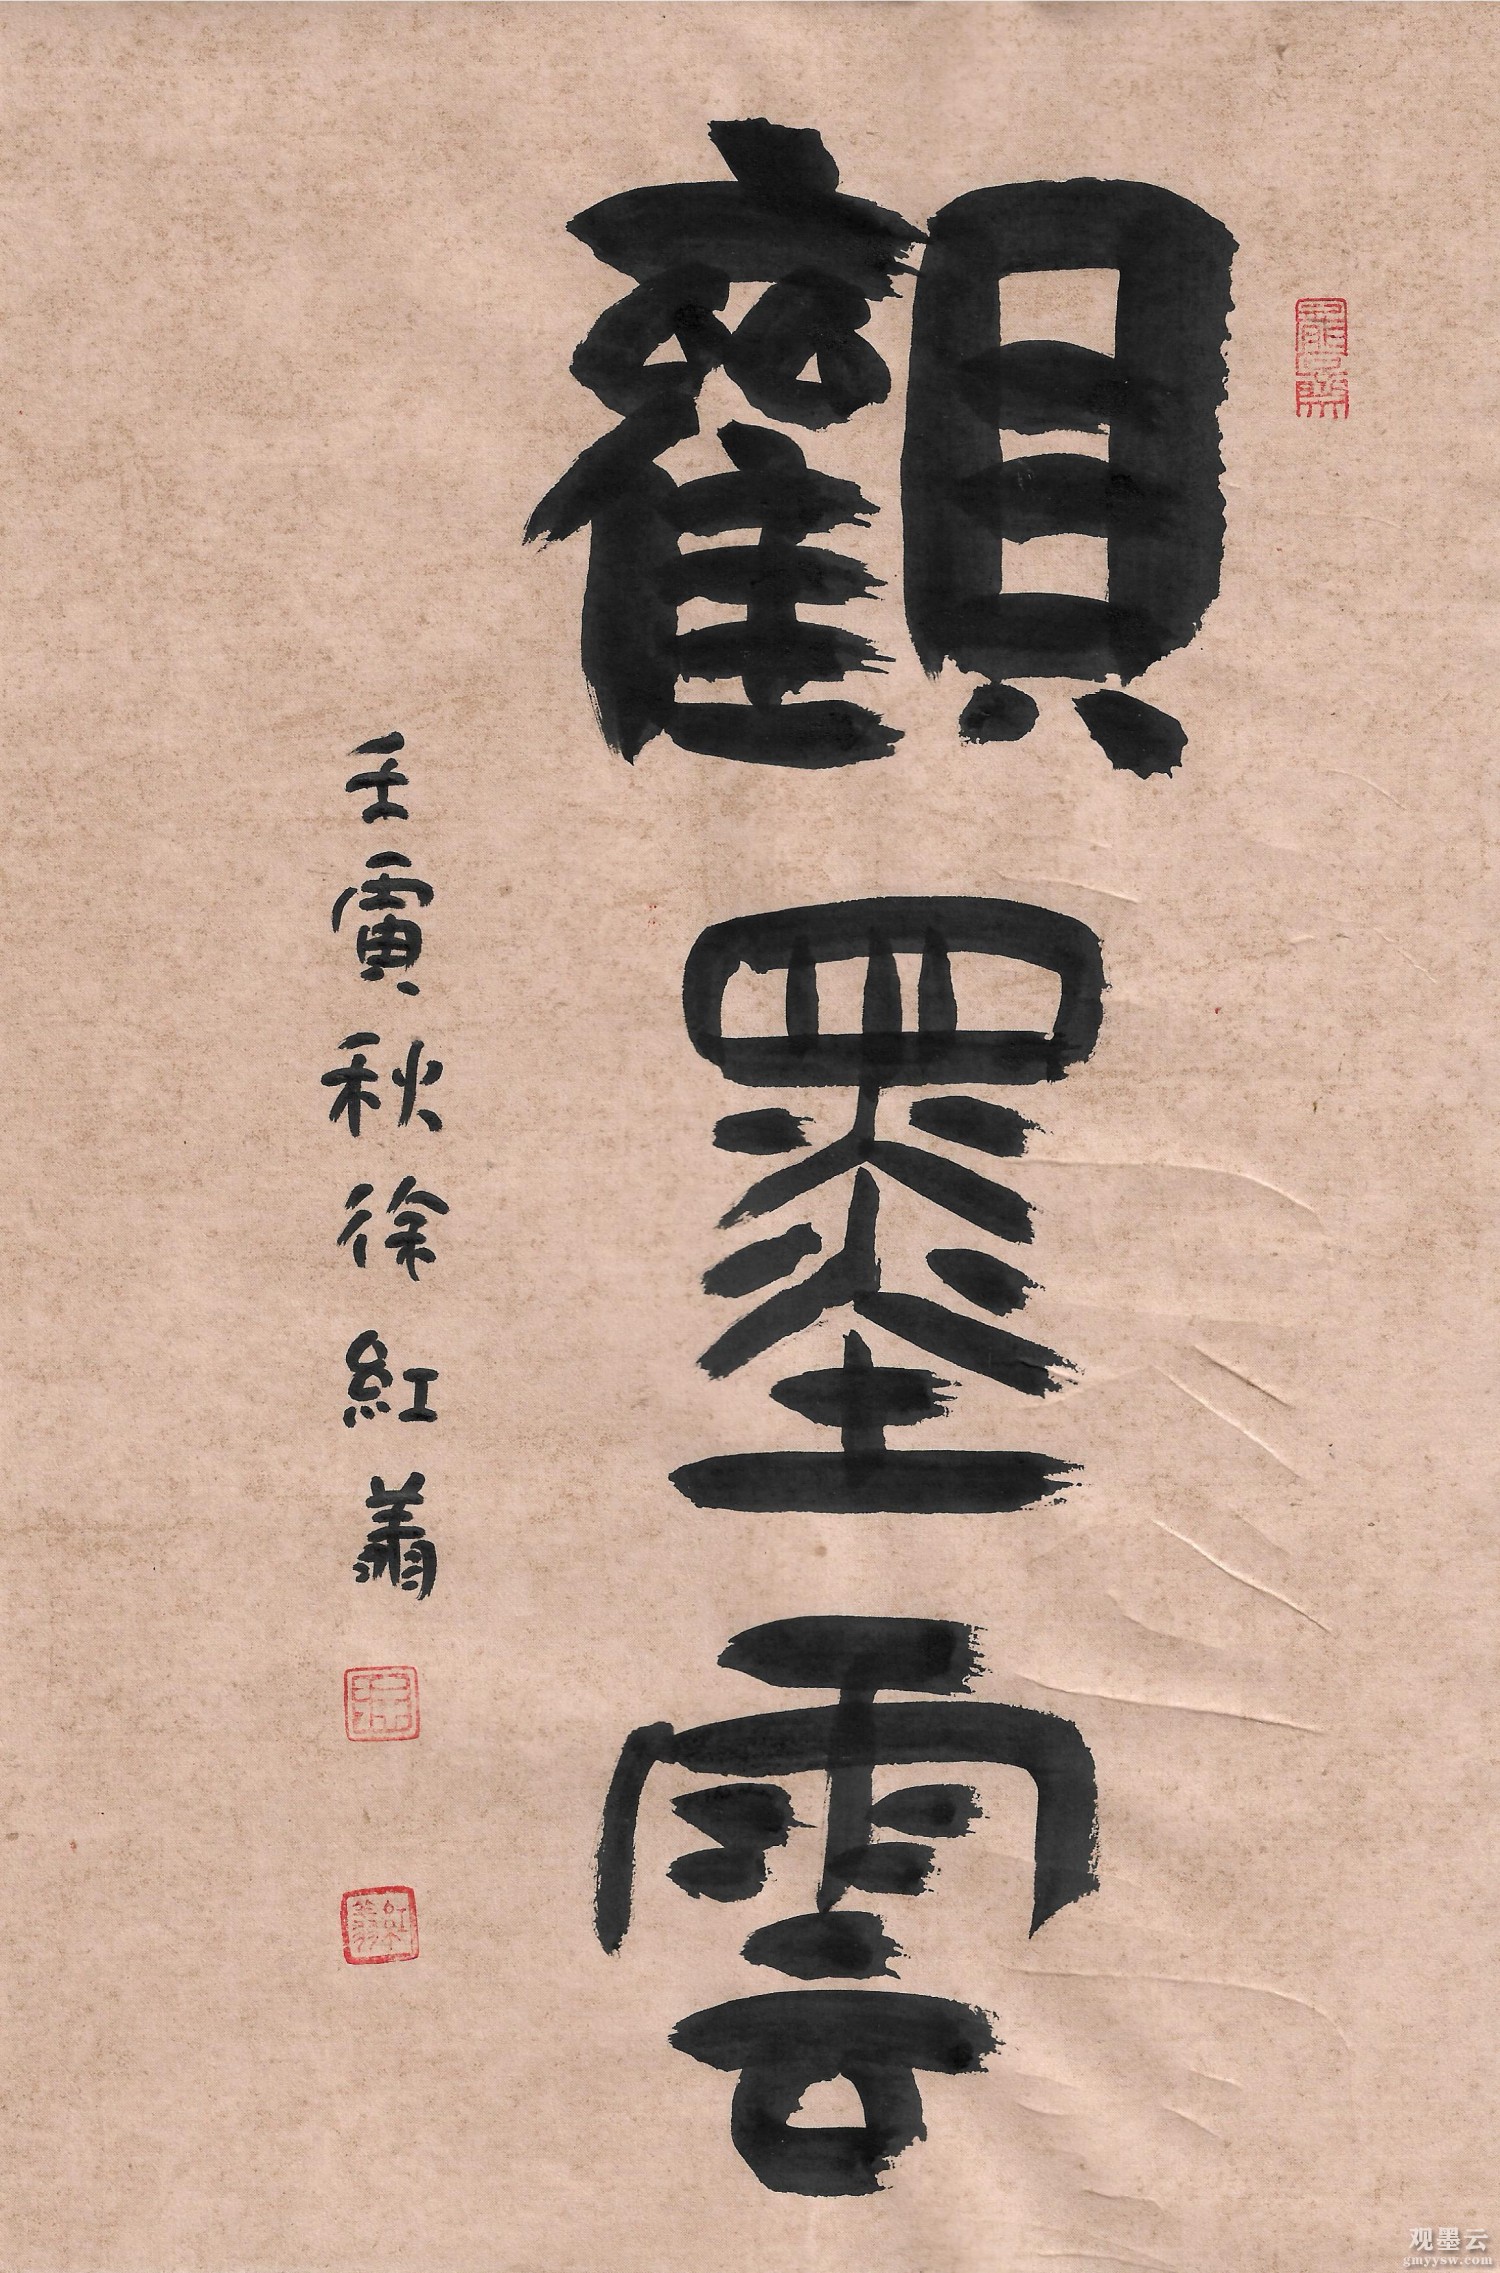 觀墨雲
壬寅秋徐紅翔
观墨云
gmyysw.com